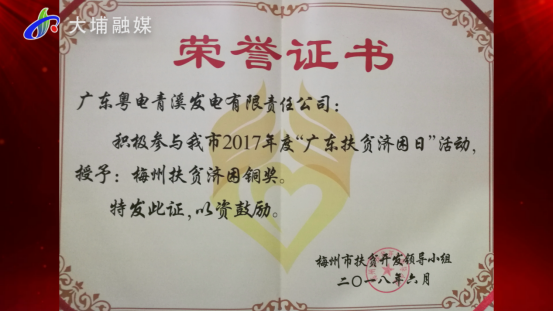 大埔融媒
荣誉证书
广东粤电青溪发电有限责任公司：
积极参与我市2017年度“广东扶贫济困日”活动，
授予：梅州扶贫济困铜奖。
特发此证，以资鼓励。
梅州市扶贫开发领导小组
二〇一八年六月